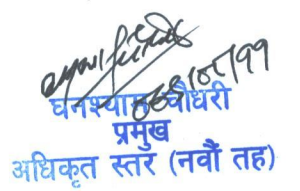 घनश्याम चौधरी
प्रमुख
अधिकृत स्तर (नवौं तह)